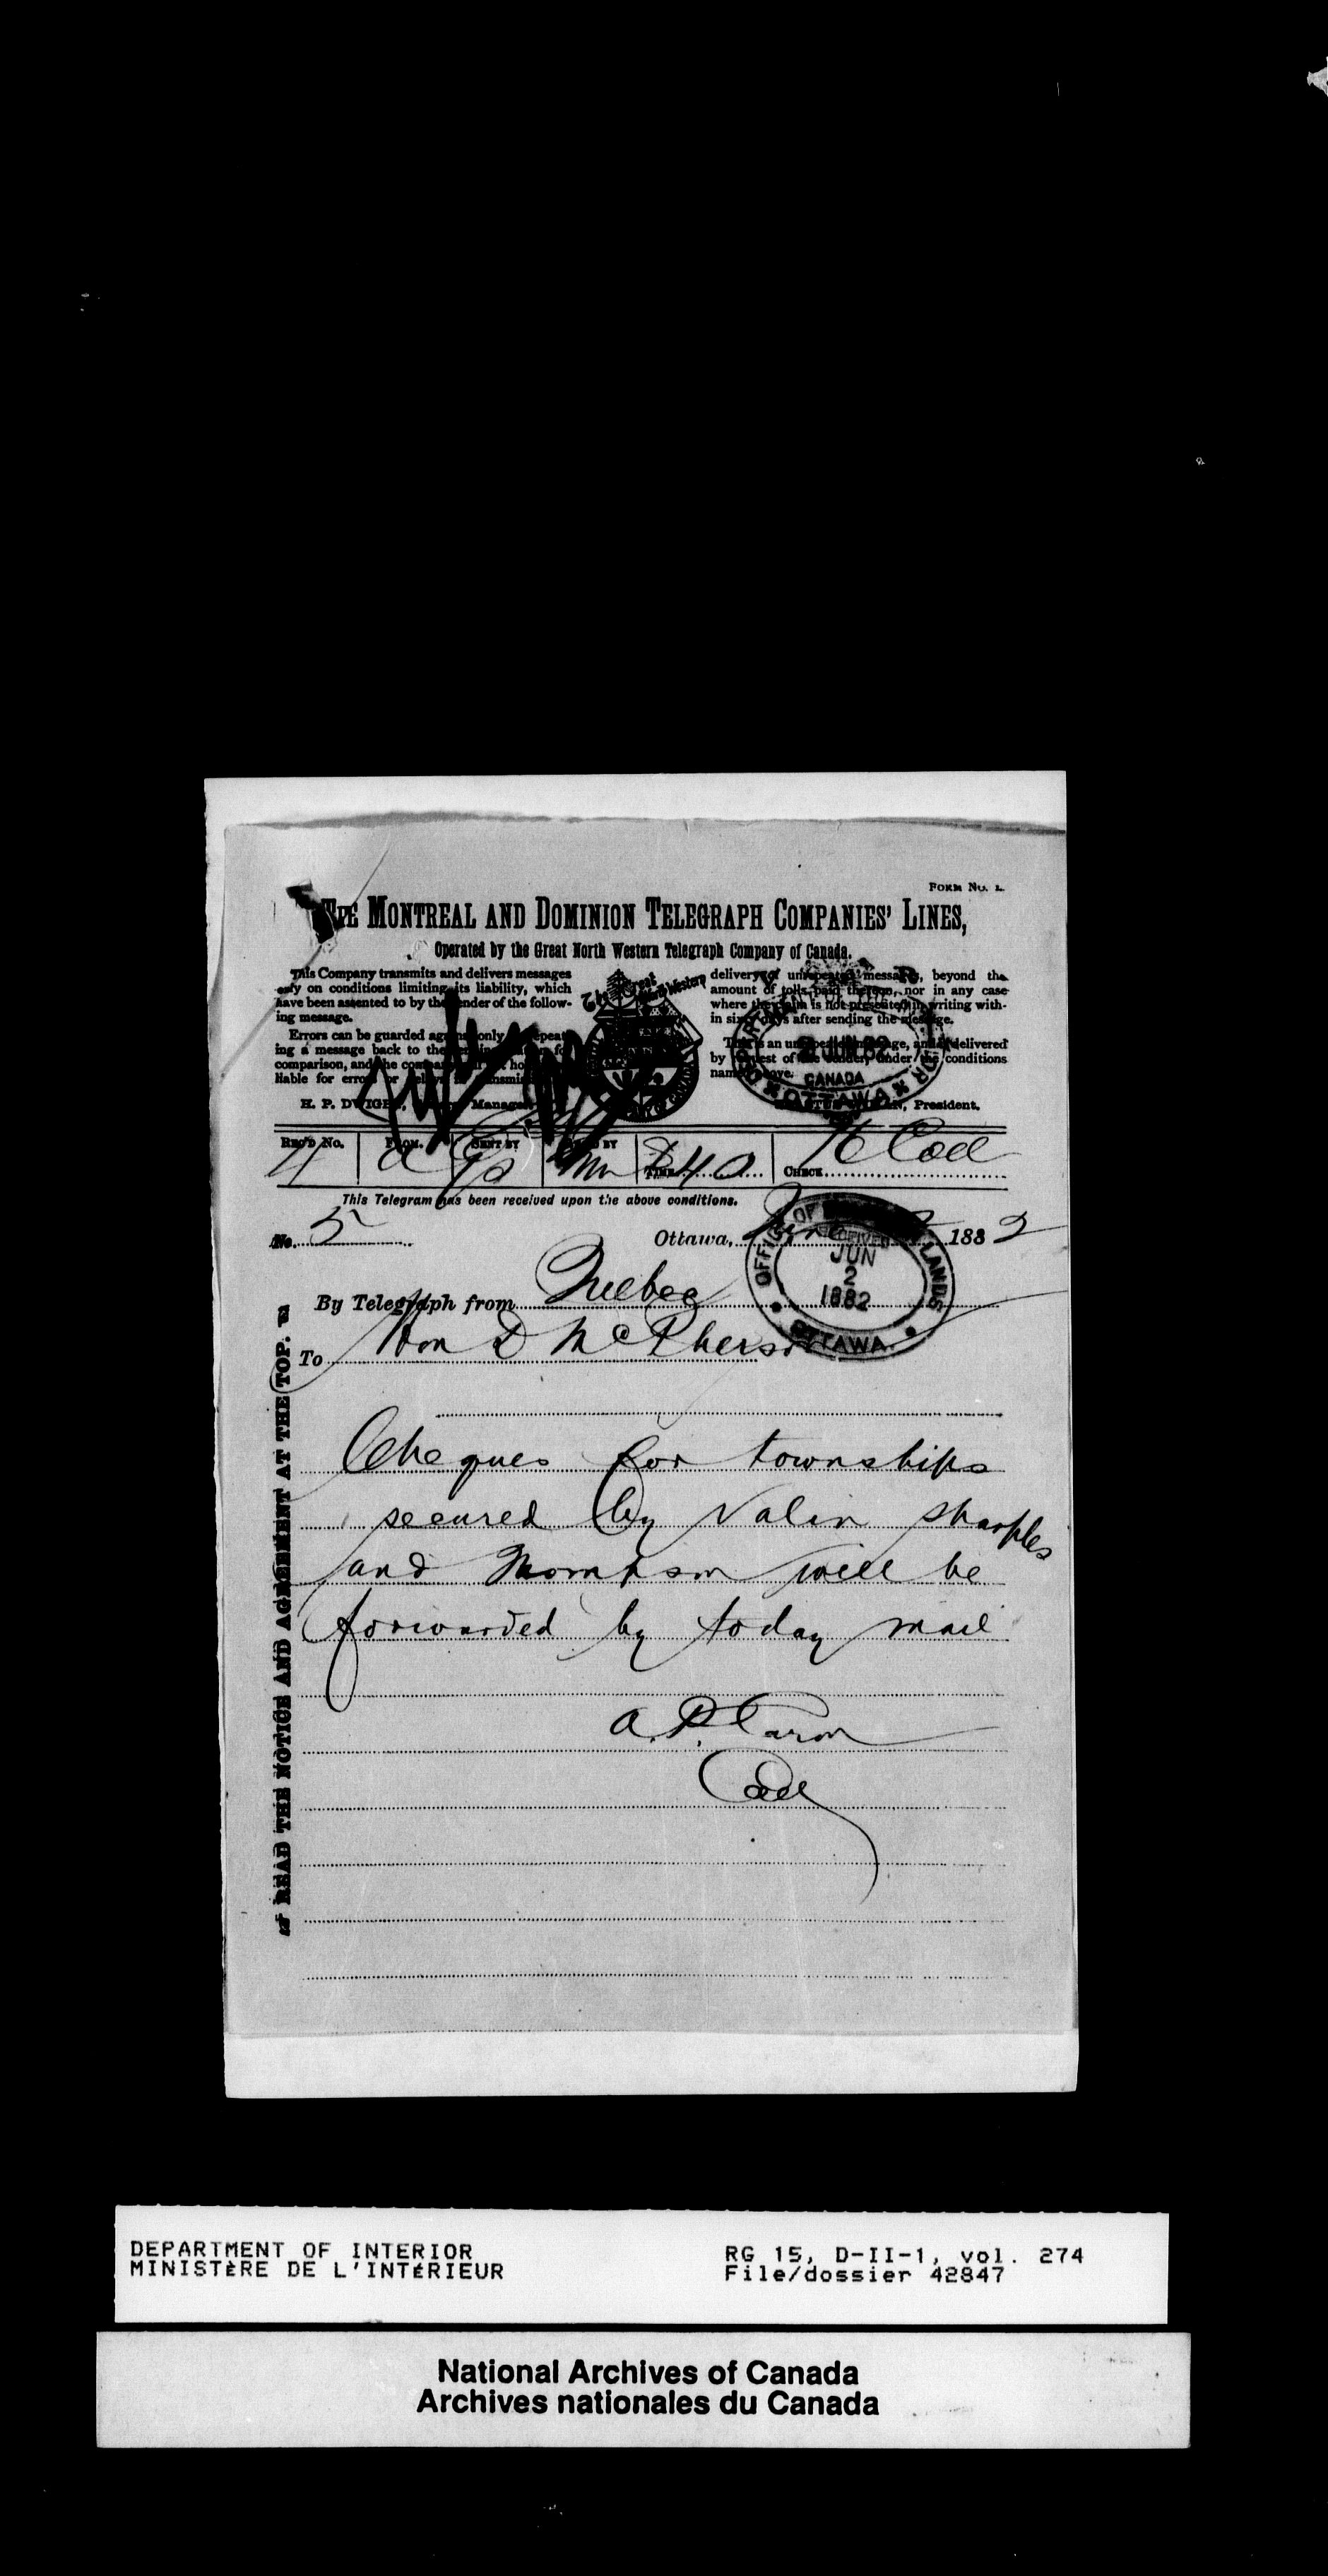 FORM NO. 1.
THE MONTREAL AND DOMINION TELEGRAPH COMPANIES' LINES,
Operated by the Great North Western Telegraph Company of Canada.
This Company transmits and delivers messages
only on conditions limiting its liability, which
have been assented to by the sender of the follow-
ing message.
Errors can be guarded against only by repeat-
ing a message back to the
comparison, and the company
liable for errors or delays in transmis
H. P. DWIGHT, Manager
Great North Western
delivery of unrepeated messages, beyond the
amount of tolls paid thereon, nor in any case
where the claim is not presented in writing with-
in sixty days after sending the message.
This is an unrepeated message, and is delivered
by request of the sender, under the conditions
named above.
President.
2 JUN 82
CANADA
OTTAWA
REC'D No. FROM. SENT BY BY TIME CHECK
This Telegram has been received upon the above conditions.
No. 5 Ottawa, June 2 1882
OFFICE OF LANDS
RECEIVED
JUN
2
1882
OTTAWA
By Telegraph from Quebec
To Hon D McPherson
Cheques for townships
secured by Valin Sharples
and Thompson will be
forwarded by today mail
A. P. Caron
READ THE NOTICE AND AGREEMENT AT THE TOP.
DEPARTMENT OF INTERIOR
MINISTÈRE DE L'INTÉRIEUR
RG 15, D-II-1, vol. 274
File/dossier 42847
National Archives of Canada
Archives nationales du Canada